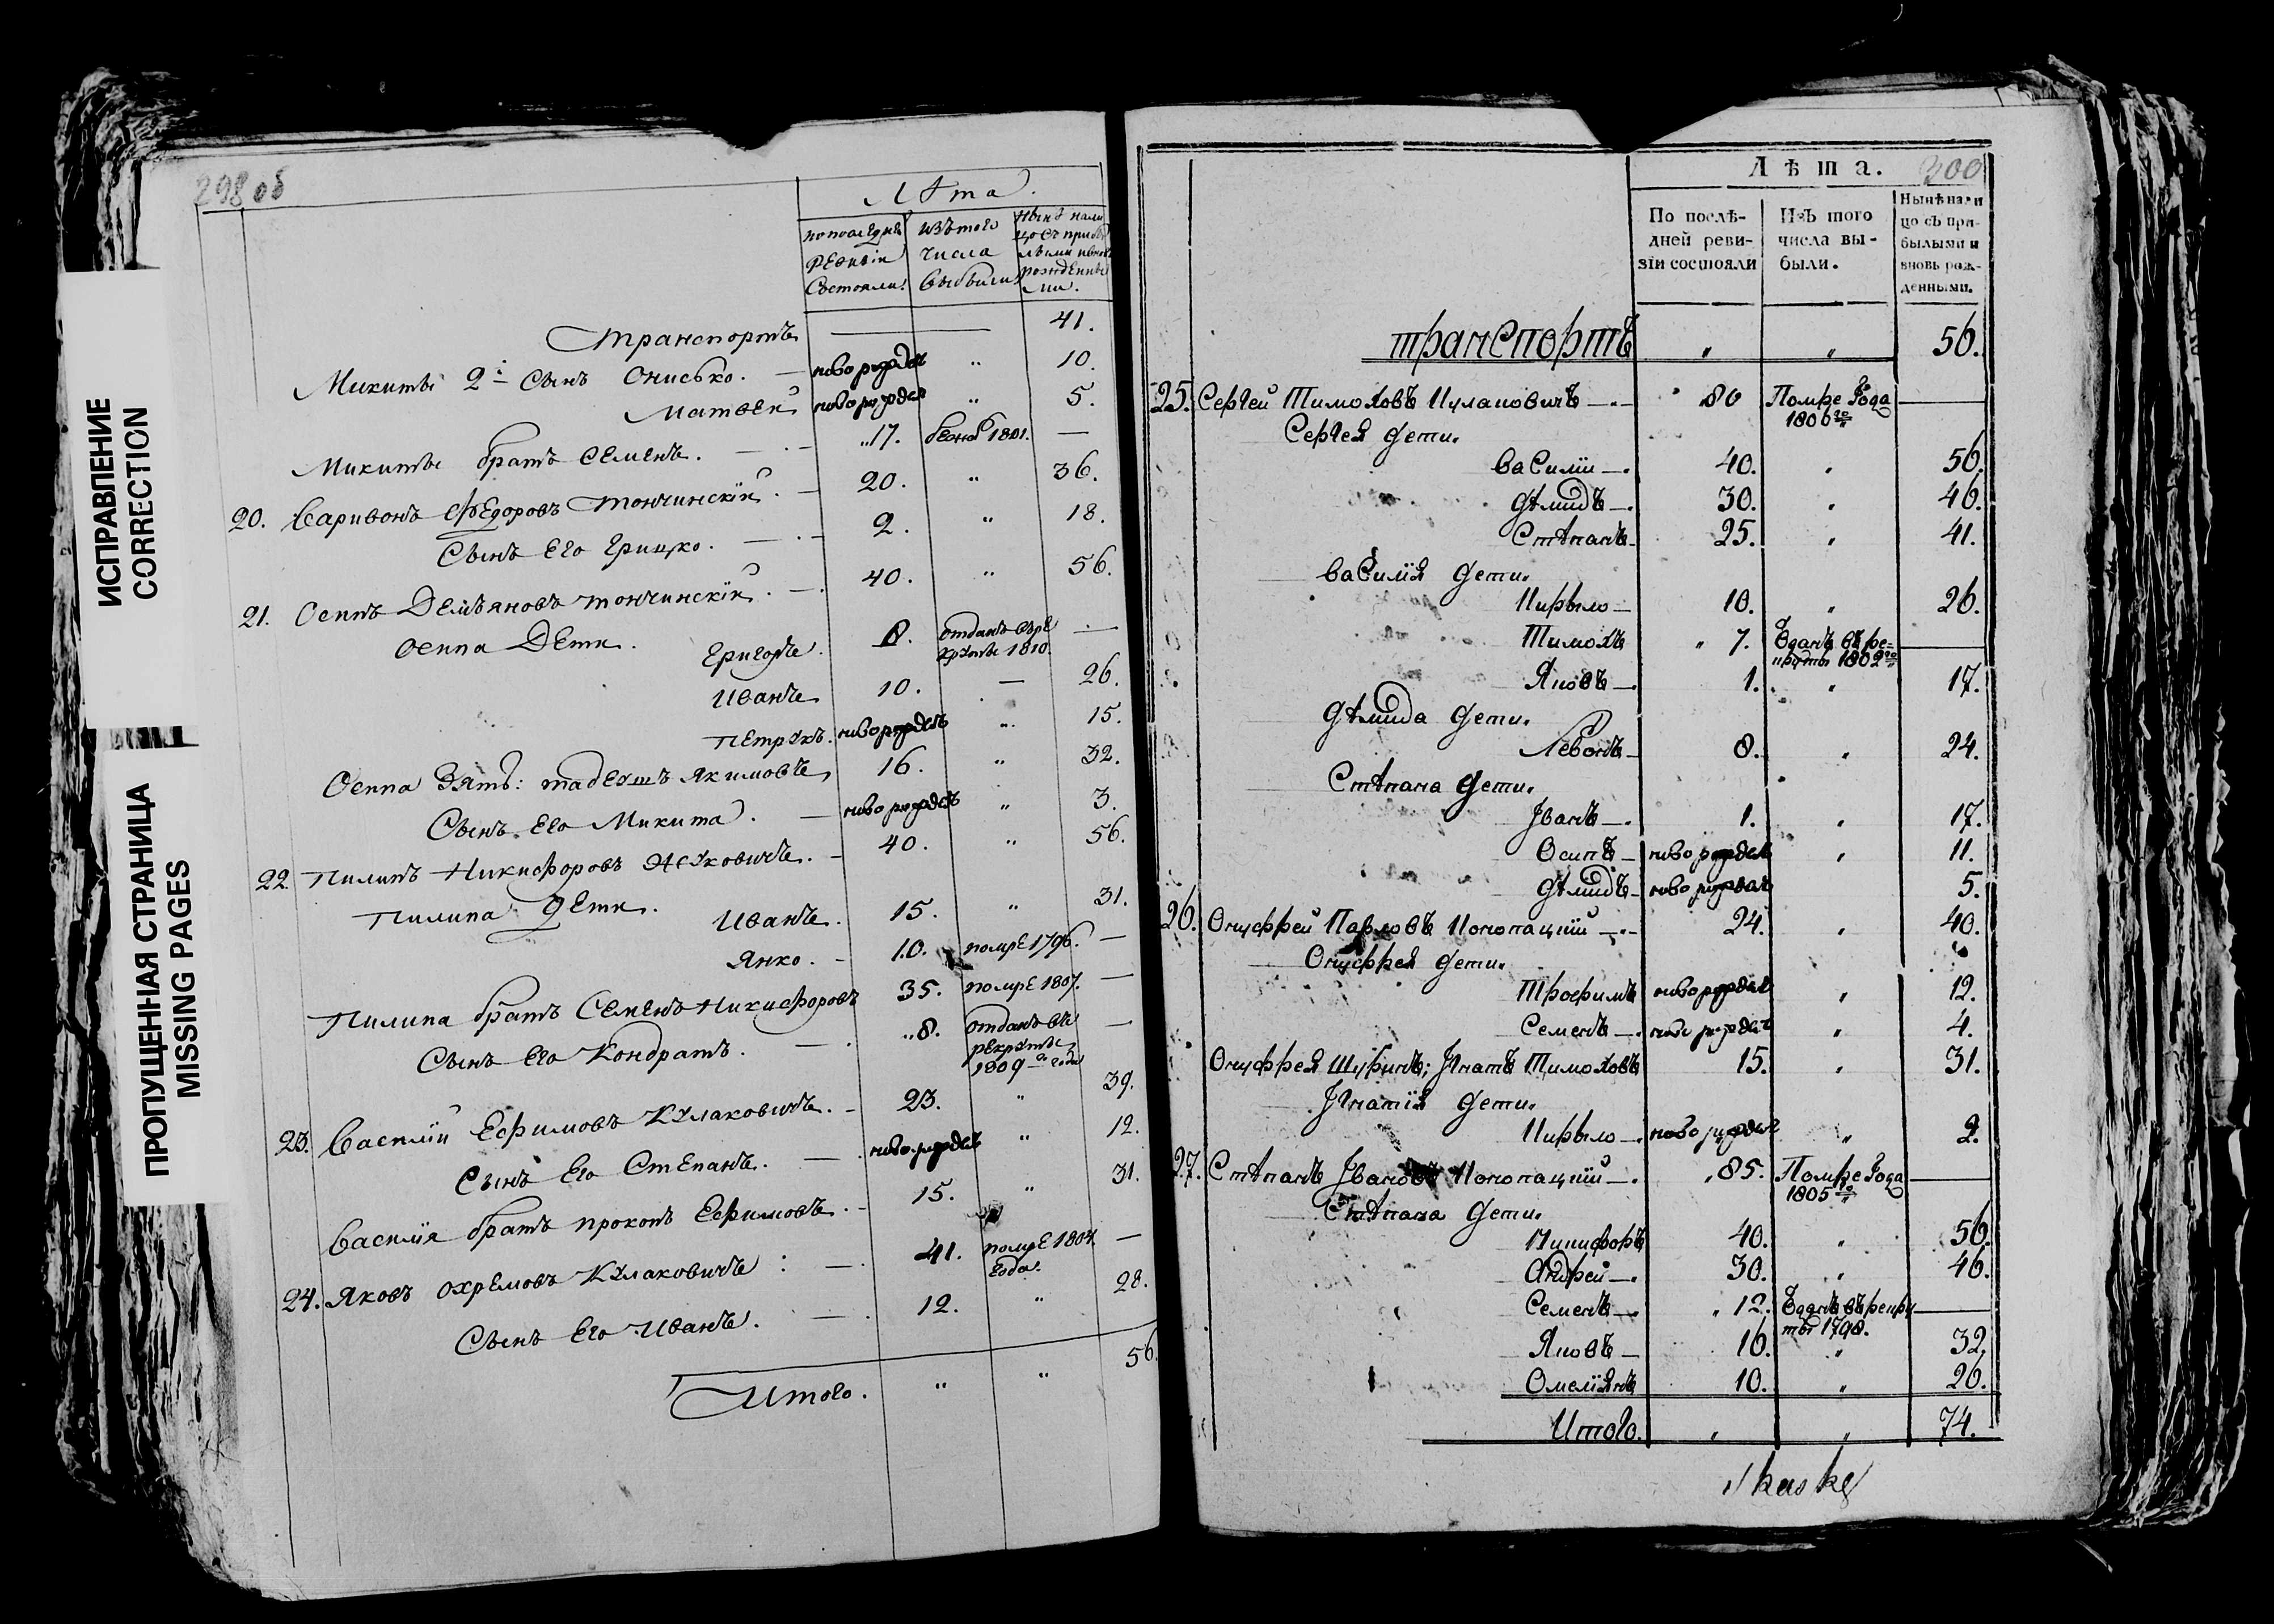 ИСПРАВЛЕНИЕ
CORRECTION
ПРОПУЩЕННАЯ СТРАНИЦА
MISSING PAGES
298 об
Лѣта.
по последней ревизіи состояли.
изъ того числа выбыли.
нынѣ налицо съ прибылыми и вновь рожденными.
транспортъ 41.
Микиты 2й сынъ Онисько. — ново рожденъ " 10.
Матвей ново рожденъ " 5.
Микиты братъ Семенъ. — "17. 1801. —
20. Саривонъ Федоровъ Тончинскій. — 20. " 36.
Сынъ Его Грицко. — 2. " 18.
21. Осипъ Демьяновъ Тончинскій. — 40. " 56.
Осипа Дети.
Григорѣ. 8. отданъ въ рекруты 1810. —
Иванъ 10. — 26.
Петрукъ. ново рожденъ " 15.
Осипа Зять: Тадеушъ Якимовъ 16. " 32.
Сынъ Его Микита. — ново рожденъ " 3.
22. Пилипъ Никифоровъ Жуковичъ. — 40. " 56.
Пилипа Дети.
Иванъ. 15. " 31.
Янко. — 10. помре 1796. —
Пилипа братъ Семенъ Никифоровъ 35. помре 1807. —
Сынъ Его Кондратъ. — "8. отданъ въ рекруты 1809го года —
23. Василій Ефимовъ Кулаковичъ. — 23. " 39.
Сынъ Его Степанъ. — ново рожденъ " 12.
Василія братъ Прокопъ Ефимовъ. — 15. " 31.
24. Яковъ Охремовъ Кулаковичъ : — 41. помре 1804 года. —
Сынъ Его Иванъ. — 12. " 28.
Итого. " " 56.
Лѣта. 300
По послѣдней ревизіи состояли
Изъ того числа выбыли.
Нынѣ налицо съ прибылыми и вновь рожденными.
транспортъ " " 56.
25. Сергей Тимоховъ Кулаковичъ — 80 Помре года 1806го —
Сергея дети.
Василіи —. 40. " 56.
Дѣмидъ —. 30. " 46.
Стѣпанъ — 25. " 41.
Василія дети.
Кирыло — 10. " 26.
Тимохъ " 7. Ѿданъ въ рекруты 1802го —
Яковъ — 1. " 17.
Дѣмида дети.
Левонъ — 8. " 24.
Стѣпана дети.
Іванъ —. 1. " 17.
Осипъ — ново рожденъ " 11.
Дѣмидъ — ново рожденъ 5.
26. Онуфрей Павловъ Конопацкій — 24. " 40.
Онуфрея дети.
Трофимъ ново рожденъ " 12.
Семенъ —. ново рожденъ " 4.
Онуфрея Шуринъ; Ігнатъ Тимоховъ 15. " 31.
Ігнатія дети.
Кирыло — ново рожденъ " 2.
27. Стѣпанъ Івановъ Конопацкій —. "85. Помре года 1805го —
Стѣпана дети.
Никифоръ 40. " 56.
Андрей —. 30. " 46.
Семенъ — " 12. Ѿданъ въ рекруты 1798. —
Яковъ — 16. " 32.
Омеліянъ 10. " 26.
Итого. " " 74.